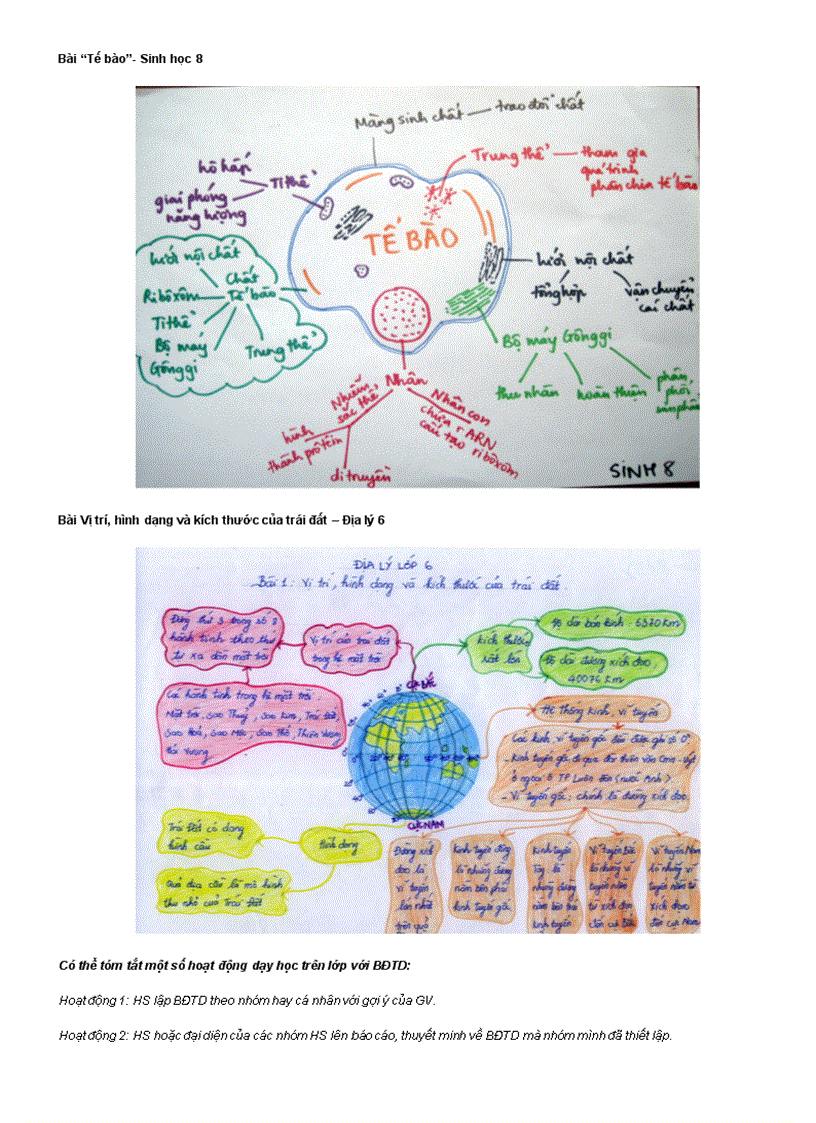 Bài “Tế bào”- Sinh học 8
Màng sinh chất — trao đổi chất
hô hấp
giải phóng
năng lượng
Ti thể
Trung thể — tham gia
quá trình
phân chia tế bào
TẾ BÀO
lưới nội chất
Chất
Ribôxôm
Tế bào
Ti thể
Bộ máy
Gônggi
Trung thể
lưới nội chất
tổng hợp
vận chuyển
các chất
Bộ máy Gônggi
thu nhận
hoàn thiện
phân
phối
sản phẩm
Nhân
Nhiễm
sắc thể
hình
thành prôtêin
di truyền
Nhân con
chứa rARN
cấu tạo ribôxôm
SINH 8
Bài Vị trí, hình dạng và kích thước của trái đất – Địa lý 6
ĐỊA LÝ LỚP 6
Bài 1: Vị trí, hình dạng và kích thước của trái đất.
Đứng thứ 3 trong số 8
hành tinh theo thứ
tự xa dần mặt trời
Vị trí của trái đất
trong hệ mặt trời
Các hành tinh trong hệ mặt trời:
Mặt trời, Sao Thuỷ, Sao Kim, Trái Đất,
Sao Hoả, Sao Mộc, Sao Thổ, Thiên Vương
Hải Vương
kích thước
rất lớn
Độ dài bán kính: 6370 Km
Độ dài đường xích đạo:
40076 Km
CỰC BẮC
CỰC NAM
Hệ thống kinh, vĩ tuyến
Các kinh, vĩ tuyến gốc đều được ghi số 0°
- Kinh tuyến gốc đi qua đài thiên văn
ở ngoại ô TP Luân Đôn (nước Anh)
- Vĩ tuyến gốc: chính là đường xích đạo
Trái Đất có dạng
hình cầu
Hình dạng
Quả địa cầu là mô hình
thu nhỏ của Trái Đất
Đường xích
đạo là
vĩ tuyến
lớn nhất
trên quả
Kinh tuyến đông
là những đường
nằm bên phải
kinh tuyến gốc
Kinh tuyến
tây là
những đường
nằm bên trái
kinh tuyến
Vĩ tuyến Bắc
là những vĩ
tuyến nằm
từ xích đạo
đến cực Bắc
Vĩ tuyến Nam
là những vĩ
tuyến nằm từ
xích đạo
đến cực Nam
Có thể tóm tắt một số hoạt động dạy học trên lớp với BĐTD:
Hoạt động 1: HS lập BĐTD theo nhóm hay cá nhân với gợi ý của GV.
Hoạt động 2: HS hoặc đại diện của các nhóm HS lên báo cáo, thuyết minh về BĐTD mà nhóm mình đã thiết lập.